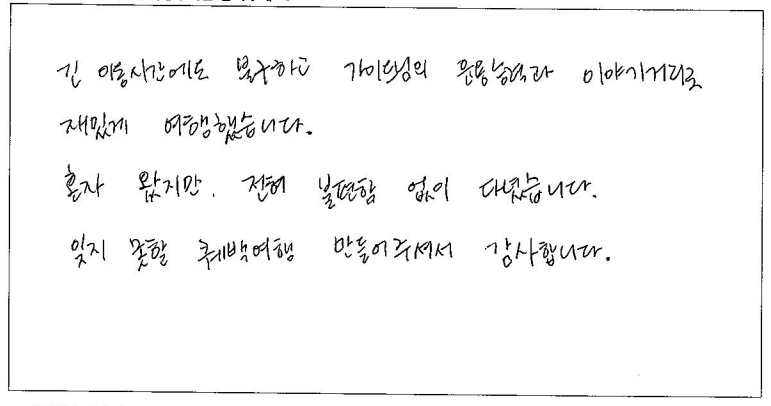 긴 이동시간에도 불구하고 가이드님의 운용능력과 이야기거리로
재밌게 여행했습니다.
혼자 왔지만, 전혀 불편함 없이 다녔습니다.
잊지 못할 퀘백여행 만들어주셔서 감사합니다.